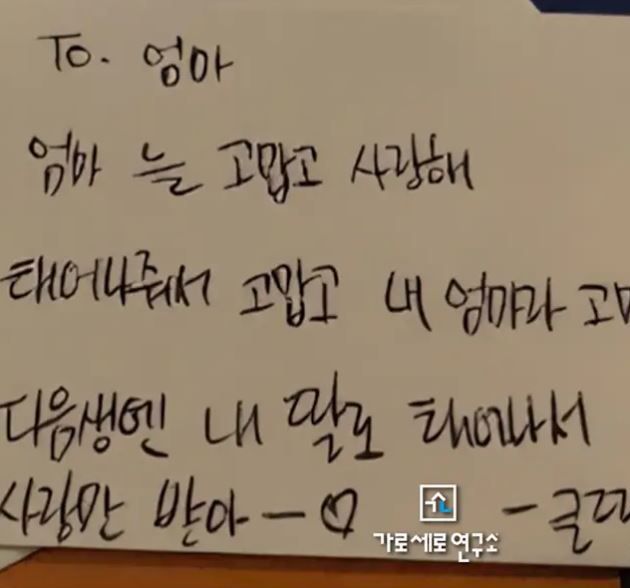 To. 엄마
엄마 늘 고맙고 사랑해
태어나줘서 고맙고 내 엄마라
다음생엔 내 딸로 태어나서
사랑만 받아 - ♡
가로세로연구소